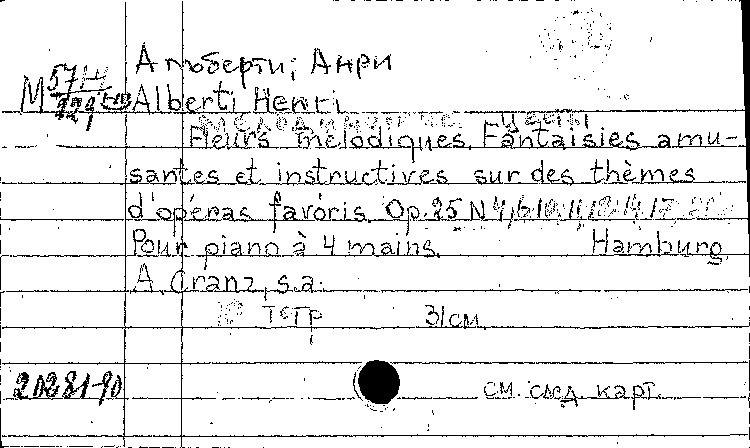 Альберти, Анри
М
Alberti Henri
Fleurs mélodiques. Fantaisies amu-
santes et instructives sur des thèmes
d'opéras favoris. Op. 25 N 4,6,10,11,12,14,17,
Pour piano à 4 mains. Hamburg
A. Cranz, s.a.
тетр 31см.
20281-90 см. след. карт.